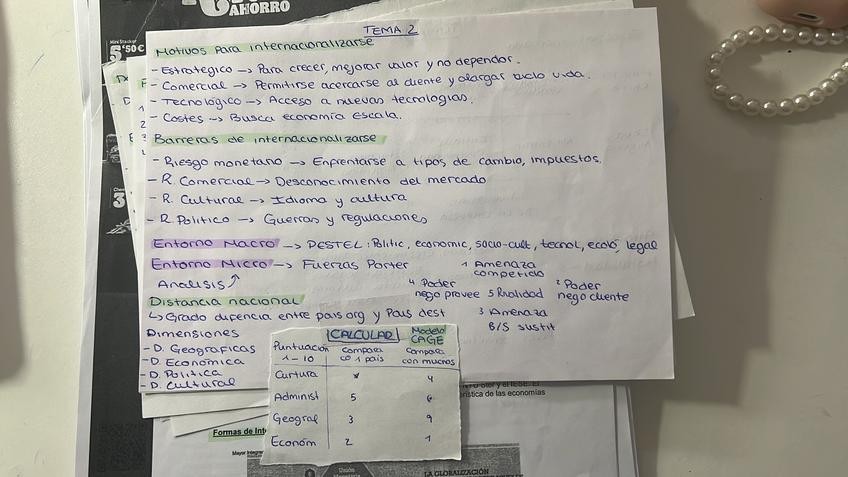 AHORRO
5'50€
TEMA 2
Motivos para internacionalizarse
- Estrategico → Para crecer, mejorar valor y no depender.
- Comercial → Permitirse acercarse al cliente y alargar ciclo vida.
- Tecnológico → Acceso a nuevas tecnologías.
- Costes → Busca economía escala.
Barreras de internacionalizarse
- Riesgo monetario → Enfrentarse a tipos de cambio, impuestos.
- R. Comercial → Desconocimiento del mercado
- R. Cultural → Idioma y cultura
- R. Politico → Guerras y regulaciones
Entorno Macro → PESTEL: Politic, economic, socio-cult, tecnol, ecoló, legal
Entorno Micro → Fuerzas Porter
1 Amenaza competido
Analisis
4 Poder nego provee
5 Rivalidad
2 Poder nego cliente
3 Amenaza B/S sustit
Distancia nacional
↳ Grado difencia entre pais org y Pais dest
Dimensiones
- D. Geograficas
- D. Económica
- D. Politica
- D. Cultural
CALCULAR Modelo CAGE
Puntuación 1-10
compara co 1 país
compara con muchos
Cultura 4
Administ 5 6
Geograf 3 9
Económ 2 1
rística de las economías
Formas de Int
Mayor Integra
Unión
LA GLOBALIZACIÓN